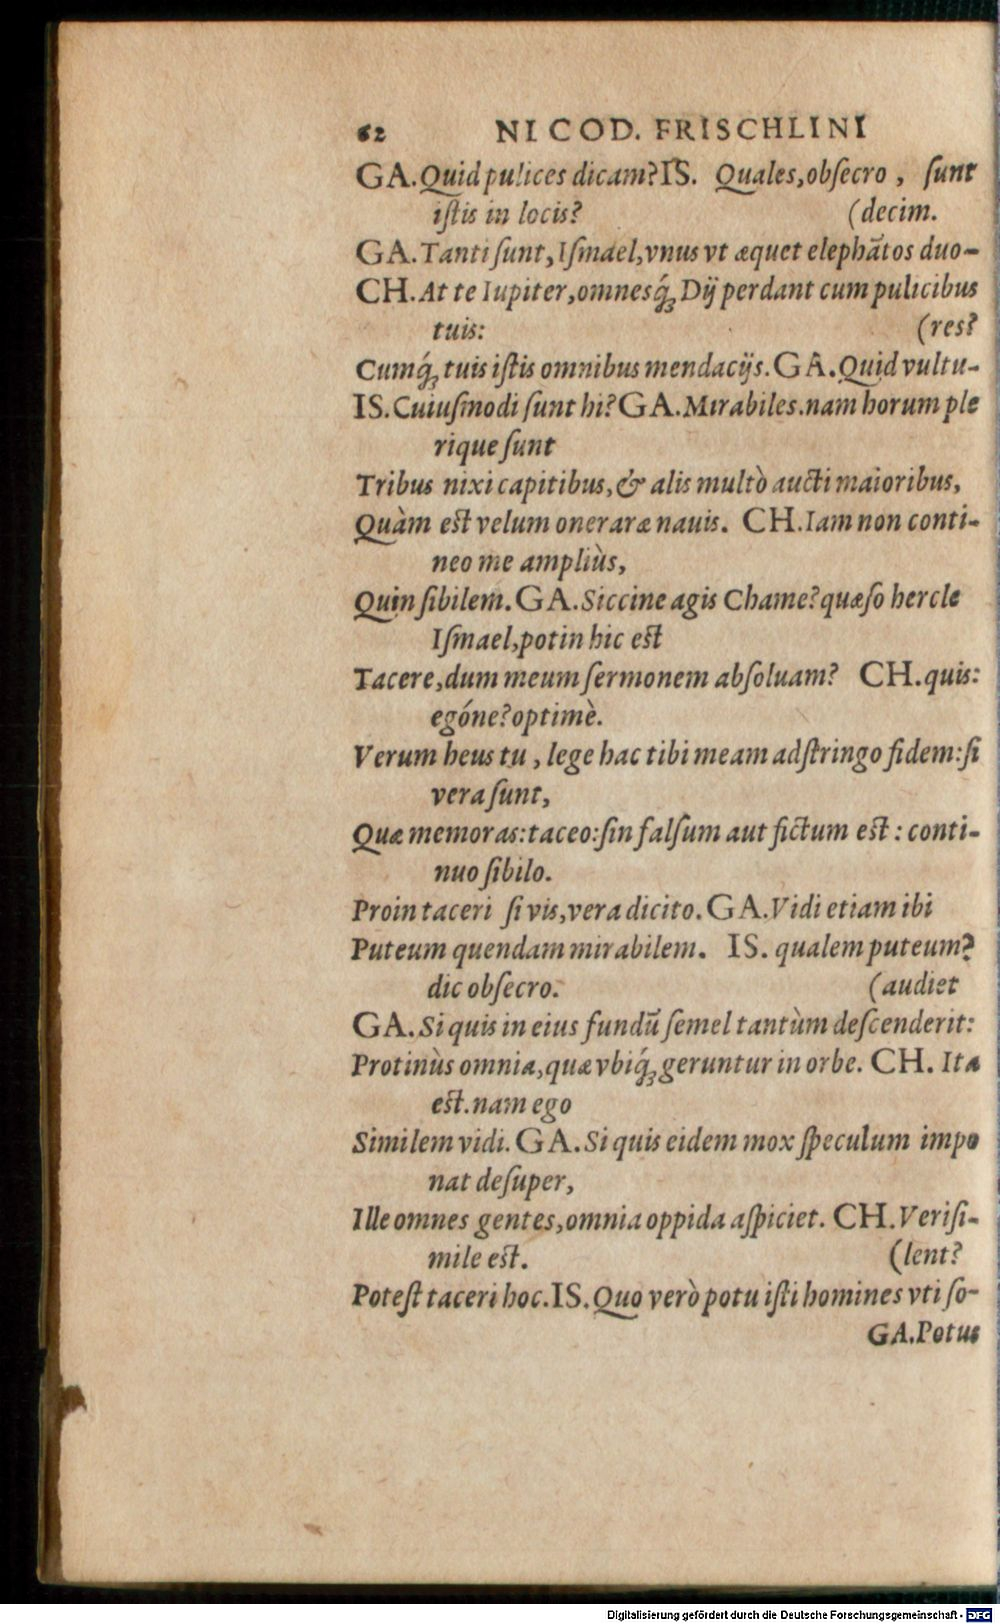 62 NICOD. FRISCHLINI
GA. Quid pulices dicam? IS. Quales, obſecro, ſunt
iſtis in locis? (decim.
GA. Tanti ſunt, Iſmael, vnus vt æquet elephãtos duo-
CH. At te Iupiter, omnesq́ꝫ Dij perdant cum pulicibus
tuis: (res?
Cumq́ꝫ tuis iſtis omnibus mendacijs. GA. Quid vultu-
IS. Cuiuſmodi ſunt hi? GA. Mirabiles. nam horum ple
rique ſunt
Tribus nixi capitibus, & alis multò aucti maioribus,
Quàm eſt velum onerariæ nauis. CH. Iam non conti-
neo me ampliùs,
Quin ſibilem. GA. Siccine agis Chame? quæſo hercle
Iſmael, potin hic eſt
Tacere, dum meum ſermonem abſoluam? CH. quis:
egóne? optimè.
Verum heus tu, lege hac tibi meam adſtringo fidem: ſi
vera ſunt,
Quæ memoras: taceo: ſin falſum aut fictum eſt: conti-
nuo ſibilo.
Proin taceri ſi vis, vera dicito. GA. Vidi etiam ibi
Puteum quendam mirabilem. IS. qualem puteum?
dic obſecro. (audiet
GA. Si quis in eius fundū ſemel tantùm deſcenderit:
Protinùs omnia, quæ vbiq́ꝫ geruntur in orbe. CH. Ita
eſt. nam ego
Similem vidi. GA. Si quis eidem mox ſpeculum impo
nat deſuper,
Ille omnes gentes, omnia oppida aſpiciet. CH. Veriſi-
mile eſt. (lent?
Poteſt taceri hoc. IS. Quo verò potu iſti homines vti ſo-
GA. Potus
Digitalisierung gefördert durch die Deutsche Forschungsgemeinschaft - DFG